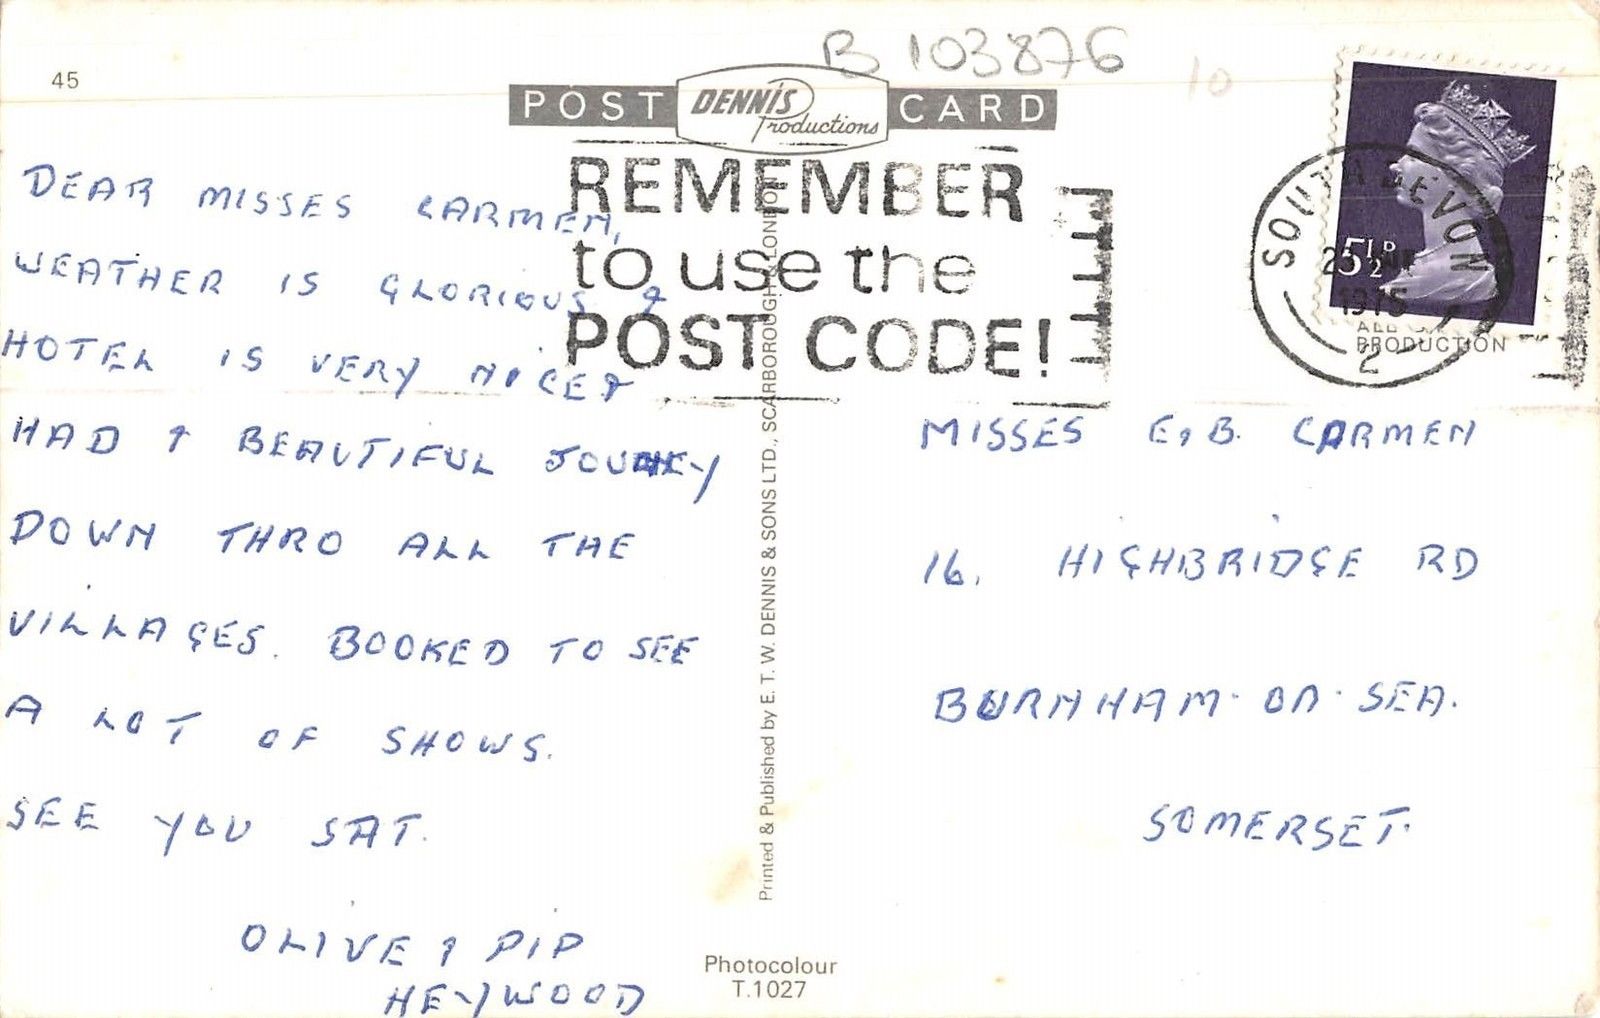 45
B 103876
10
POST DENNIS Productions CARD
REMEMBER
to use the
POST CODE!
SOUTH DEVON
1975
2
5½P
PRODUCTION
DEAR MISSES CARMEN,
WEATHER IS GLORIOUS &
HOTEL IS VERY NICE &
HAD A BEAUTIFUL
DOWN THRO ALL THE
VILLAGES. BOOKED TO SEE
A LOT OF SHOWS.
SEE YOU SAT.
OLIVE & PIP
HEYWOOD
Printed & Published by E. T. W. DENNIS & SONS LTD., SCARBOROUGH & LONDON
MISSES E & B. CARMEN
16. HIGHBRIDGE RD
BURNHAM-ON-SEA.
SOMERSET.
Photocolour
T.1027